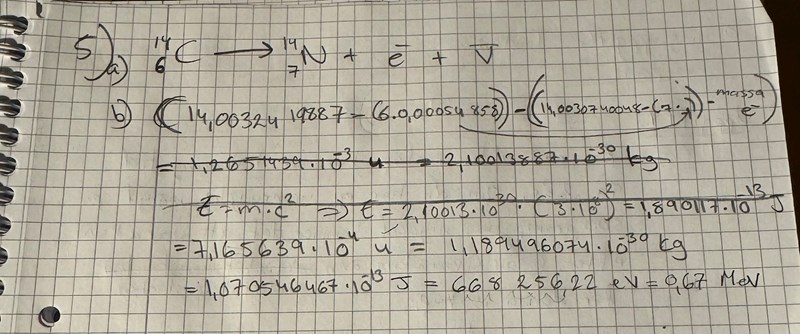 5) a) ¹⁴₆C → ¹⁴₇N + e⁻ + ν̄
b) ((14,0032419887 - (6·0,00054858)) - (14,0030740048 - (7·")) - massa e⁻)
= 1,2651439·10⁻³ u = 2,10013887·10⁻³⁰ kg
E = m·c² ⇒ E = 2,10013·10⁻³⁰ · (3·10⁸)² = 1,890117·10⁻¹³ J
= 7,165639·10⁻⁴ u = 1,189496074·10⁻³⁰ kg
= 1,070546467·10⁻¹³ J = 668 256,22 eV = 0,67 MeV